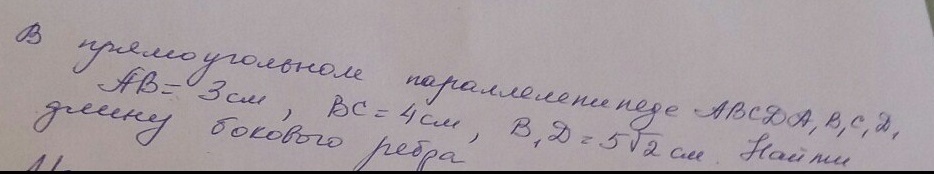 В прямоугольном параллелепипеде ABCDA₁B₁C₁D₁
AB = 3 см, BC = 4 см, B₁D = 5√2 см. Найти
длину бокового ребра